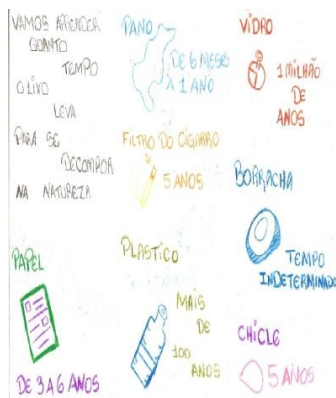 VAMOS APRENDER
QUANTO
TEMPO
O LIXO
LEVA
PARA SE
DECOMPOR
NA NATUREZA
PAPEL
DE 3 A 6 ANOS
PANO
DE 6 MESES
A 1 ANO
FILTRO DO CIGARRO
5 ANOS
PLASTICO
MAIS
DE
100
ANOS
VIDRO
1 MILHÃO
DE
ANOS
BORRACHA
TEMPO
INDETERMINADO
CHICLE
5 ANOS